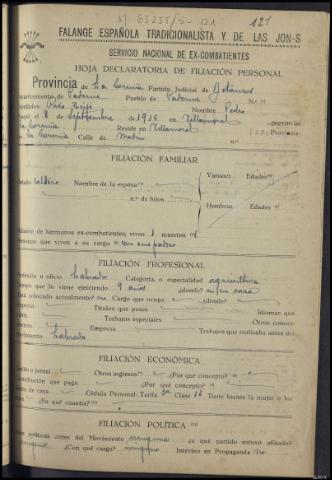 S/ 65255/S-121
121
FALANGE ESPAÑOLA TRADICIONALISTA Y DE LAS JON-S
SERVICIO NACIONAL DE EX-COMBATIENTES
HOJA DECLARATORIA DE FILIACIÓN PERSONAL
Provincia de La Coruña Partido Judicial de Betanzos
Ayuntamiento de Paderne Pueblo de Paderne N.º
Apellidos Nombre Pedro
8 de Septiembre de 1916 en Villamorel provincia
Coruña Reside en Villamorel Provincia
Coruña Calle de n.º
FILIACIÓN FAMILIAR
Estado soltero Nombre de la esposa
Varones Edades
n.º de hijos
Hembras Edades
Número de hermanos ex-combatientes, vivos 1 muertos
Personas que viven a su cargo con sus padres
FILIACIÓN PROFESIONAL
Profesión u oficio labrador Categoría o especialidad agricultura
Tiempo que lo viene ejerciendo 9 años ¿donde? en su casa
Está colocado actualmente? no Cargo que ocupa ¿donde?
Títulos que posee Idiomas que
Trabajos especiales Otros conoci-
Empresa Trabajos que realizaba antes del
Movimiento labrador
FILIACIÓN ECONÓMICA
Otros ingresos ¿Por qué concepto?
Contribución que paga ¿Por qué concepto?
de casa Cédula Personal: Tarifa Clase Tiene bienes la mujer o los
¿En qué cuantía?
FILIACIÓN POLÍTICA
políticas antes del Movimiento ninguna ¿a qué partido estuvo afiliado?
ninguno ¿Con qué cargo? ninguno Intervino en Propaganda no